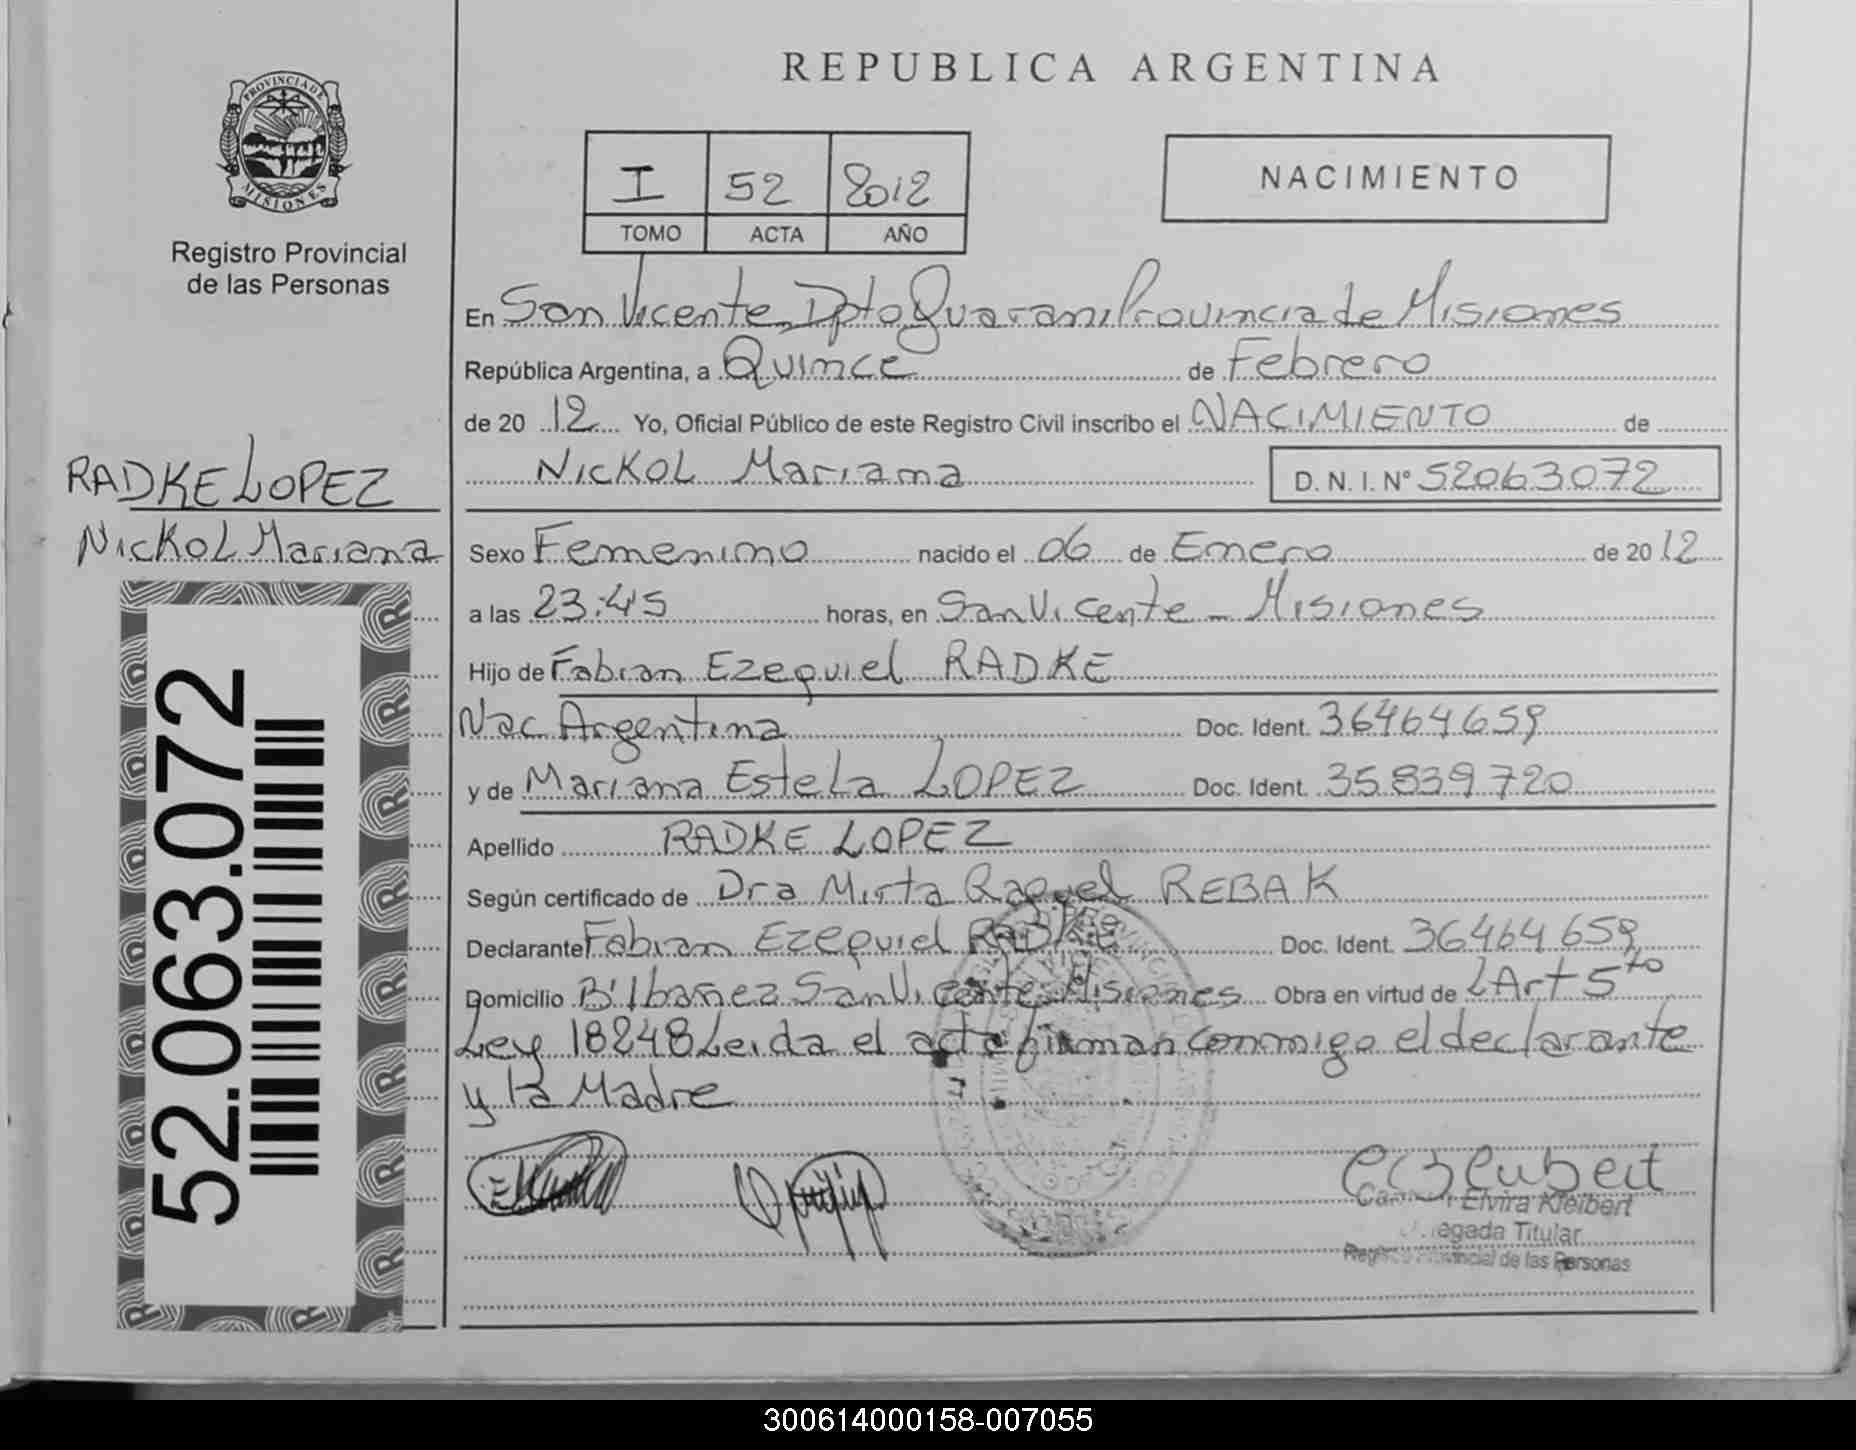 REPUBLICA ARGENTINA
PROVINCIA DE MISIONES
Registro Provincial
de las Personas
I 52 2012
TOMO ACTA AÑO
NACIMIENTO
En San Vicente Dpto Guarani Provincia de Misiones
República Argentina, a Quince de Febrero
de 20 12 Yo, Oficial Público de este Registro Civil inscribo el NACIMIENTO de
Nickol Mariana D. N. I. N° 52063072
RADKE LOPEZ
Nickol Mariana
Sexo Femenino nacido el 06 de Enero de 20 12
a las 23:45 horas, en San Vicente - Misiones
Hijo de Fabian Ezequiel RADKE
Nac Argentina Doc. Ident. 36464659
y de Mariana Estela LOPEZ Doc. Ident. 35839720
Apellido RADKE LOPEZ
Según certificado de Dra Mirta Raquel REBAK
Declarante Fabian Ezequiel RADKE Doc. Ident. 36464659
Domicilio B° Ibañez San Vicente Misiones Obra en virtud de LArt 5to
Ley 18248 Leida el acta firman conmigo el declarante
y la Madre
52.063.072
Elvira Kleibert
Titular
Provincial de las Personas
300614000158-007055